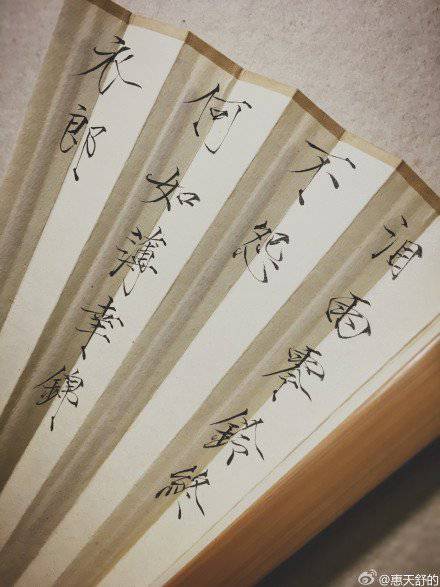 泪雨零铃終
不怨
何如薄幸錦
衣郎
@惠天舒的